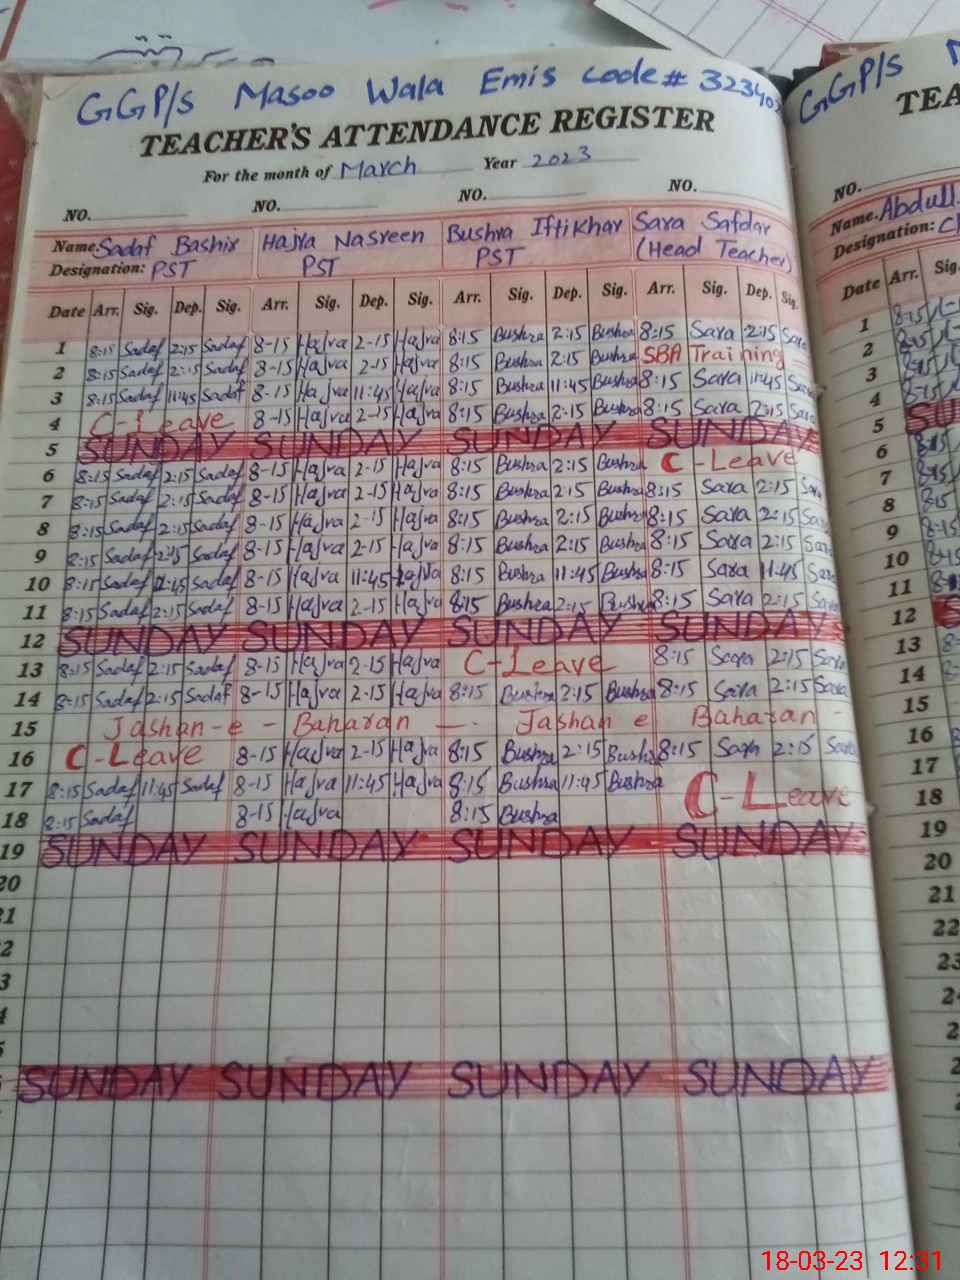 GGP/s Masoo Wala Emis code# 323402
TEACHER'S ATTENDANCE REGISTER
For the month of March Year 2023
NO. NO. NO. NO.
Name. Sadaf Bashir Hajra Nasreen Bushra Iftikhar Sara Safdar
Designation: PST PST PST (Head Teacher)
Date Arr. Sig. Dep. Sig. Arr. Sig. Dep. Sig. Arr. Sig. Dep. Sig. Arr. Sig. Dep. Sig.
1 8:15 Sadaf 2:15 Sadaf 8-15 Hajra 2-15 Hajra 8:15 Bushra 2:15 Bushra 8:15 Sara 2:15 Sara
2 8:15 Sadaf 2:15 Sadaf 8-15 Hajra 2-15 Hajra 8:15 Bushra 2:15 Bushra SBA Training
3 8:15 Sadaf 11:45 Sadaf 8-15 Hajra 11:45 Hajra 8:15 Bushra 11:45 Bushra 8:15 Sara 11:45 Sara
4 C-Leave 8-15 Hajra 2-15 Hajra 8:15 Bushra 2:15 Bushra 8:15 Sara 2:15 Sara
5 SUNDAY SUNDAY SUNDAY SUNDAY
6 8:15 Sadaf 2:15 Sadaf 8-15 Hajra 2-15 Hajra 8:15 Bushra 2:15 Bushra C-Leave
7 8:15 Sadaf 2:15 Sadaf 8-15 Hajra 2-15 Hajra 8:15 Bushra 2:15 Bushra 8:15 Sara 2:15 Sara
8 8:15 Sadaf 2:15 Sadaf 8-15 Hajra 2-15 Hajra 8:15 Bushra 2:15 Bushra 8:15 Sara 2:15 Sara
9 8:15 Sadaf 2:15 Sadaf 8-15 Hajra 2-15 Hajra 8:15 Bushra 2:15 Bushra 8:15 Sara 2:15 Sara
10 8:15 Sadaf 11:45 Sadaf 8-15 Hajra 11:45 Hajra 8:15 Bushra 11:45 Bushra 8:15 Sara 11:45 Sara
11 8:15 Sadaf 2:15 Sadaf 8-15 Hajra 2-15 Hajra 8:15 Bushra 2:15 Bushra 8:15 Sara 2:15 Sara
12 SUNDAY SUNDAY SUNDAY SUNDAY
13 8:15 Sadaf 2:15 Sadaf 8-15 Hajra 2-15 Hajra C-Leave 8:15 Sara 2:15 Sara
14 8:15 Sadaf 2:15 Sadaf 8-15 Hajra 2-15 Hajra 8:15 Bushra 2:15 Bushra 8:15 Sara 2:15 Sara
15 Jashan-e-Baharan — Jashan e Baharan -
16 C-Leave 8-15 Hajra 2-15 Hajra 8:15 Bushra 2:15 Bushra 8:15 Sara 2:15 Sara
17 8:15 Sadaf 11:45 Sadaf 8-15 Hajra 11:45 Hajra 8:15 Bushra 11:45 Bushra C-Leave
18 8:15 Sadaf 8-15 Hajra 8:15 Bushra
19 SUNDAY SUNDAY SUNDAY SUNDAY
20
21
SUNDAY SUNDAY SUNDAY SUNDAY
GGP/s
NO.
Name. Abdull
Designation:
Date Arr. Sig.
1
2
3
4
5
6
7
8
9
10
11
12
13
14
15
16
17
18
19
20
21
22
18-03-23 12:31